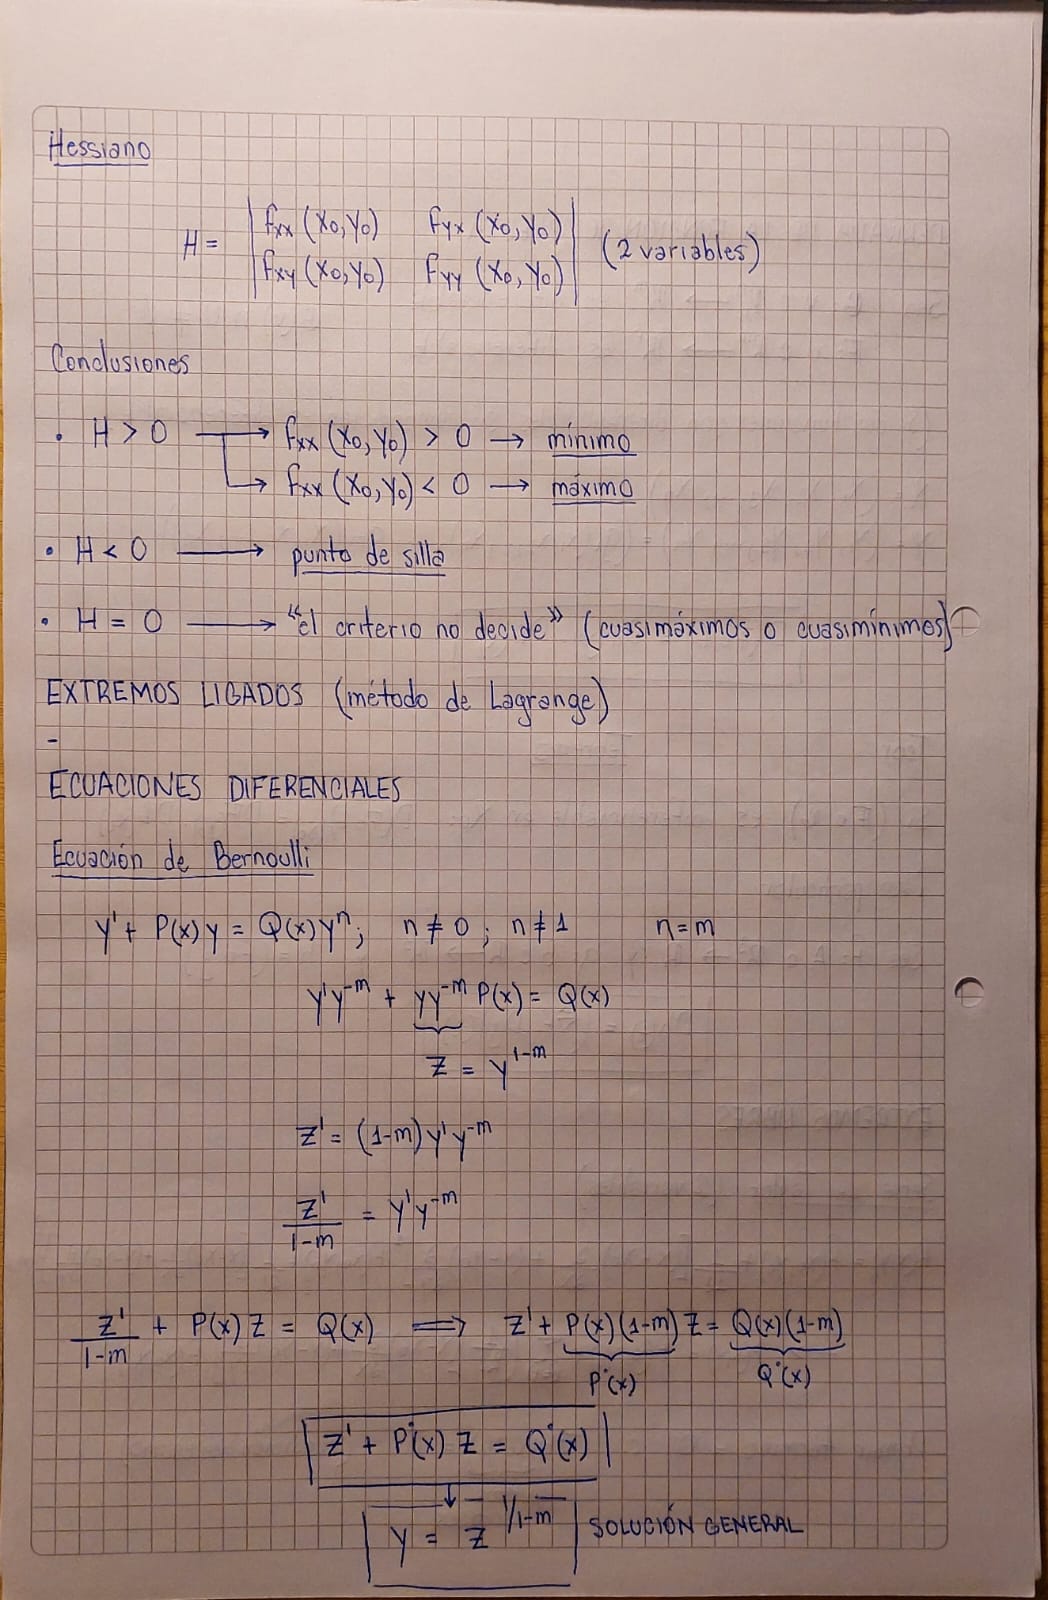 Hessiano
H = | fxx (x₀,y₀) fyx (x₀,y₀) | (2 variables)
| fxy (x₀,y₀) fyy (x₀,y₀) |
Conclusiones
• H > 0 → fxx (x₀,y₀) > 0 → mínimo
→ fxx (x₀,y₀) < 0 → máximo
• H < 0 → punto de silla
• H = 0 → "el criterio no decide" (cuasimáximos o cuasimínimos)
EXTREMOS LIGADOS (método de Lagrange)
-
ECUACIONES DIFERENCIALES
Ecuación de Bernoulli
y' + P(x)y = Q(x)yⁿ; n ≠ 0; n ≠ 1 n=m
y'y⁻ᵐ + yy⁻ᵐ P(x) = Q(x)
z = y¹⁻ᵐ
z' = (1-m)y'y⁻ᵐ
z'/(1-m) = y'y⁻ᵐ
z'/(1-m) + P(x) z = Q(x) ⟹ z' + P(x)(1-m) z = Q(x)(1-m)
P°(x) Q°(x)
z' + P°(x) z = Q°(x)
↓
y = z^(1/1-m) SOLUCIÓN GENERAL